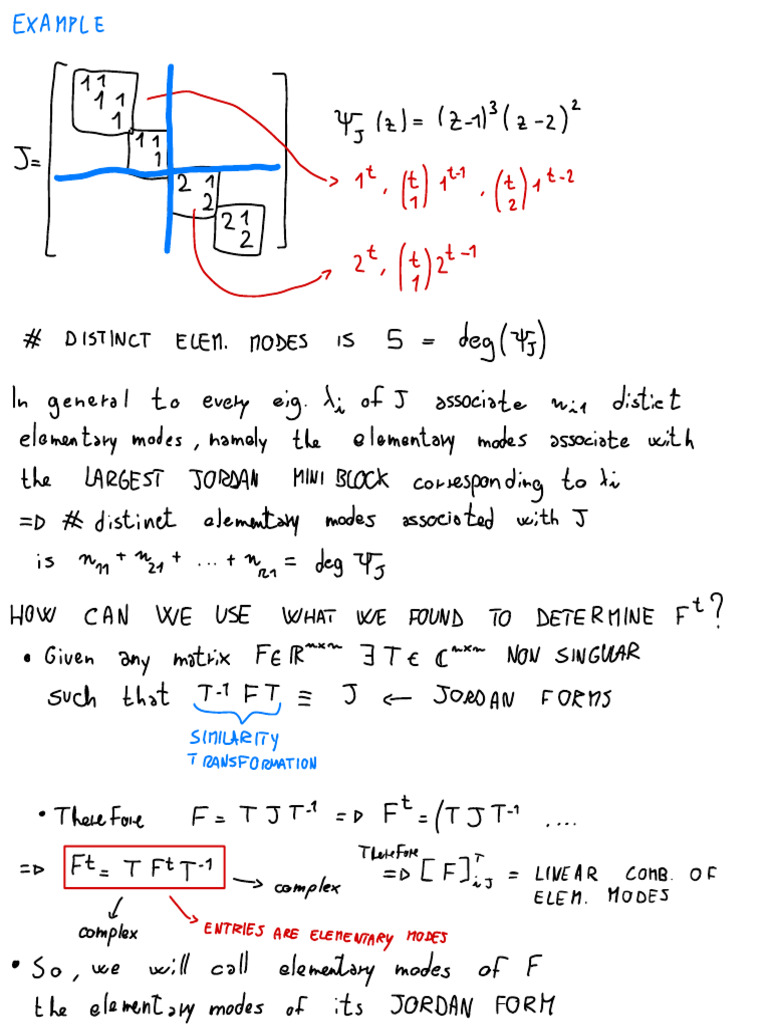 EXAMPLE
1 1
1 1
1
1 1
1
J =
2 1
2
2 1
2
Ψ_J (z) = (z-1)^3 (z-2)^2
1^t, (t 1) 1^{t-1}, (t 2) 1^{t-2}
2^t, (t 1) 2^{t-1}
# DISTINCT ELEM. MODES IS 5 = deg(Ψ_J)
In general to every eig. λi of J associate n_{i1} distict
elementary modes, namely the elementary modes associate with
the LARGEST JORDAN MINI BLOCK corresponding to λi
=> # distinct elementary modes associated with J
is n_{11} + n_{21} + ... + n_{r1} = deg Ψ_J
HOW CAN WE USE WHAT WE FOUND TO DETERMINE F^t?
• Given any matrix F∈ℝ^{n×n} ∃ T∈ ℂ^{n×n} NON SINGULAR
such that T^{-1} F T ≡ J ← JORDAN FORMS
SIMILARITY
TRANSFORMATION
• Therefore F = T J T^{-1} => F^t = (T J T^{-1} ....
=> F^t = T F^t T^{-1} → complex Therefore => [F]^T_{iJ} = LINEAR COMB. OF
ELEM. MODES
complex
ENTRIES ARE ELEMENTARY MODES
• So, we will call elementary modes of F
the elementary modes of its JORDAN FORM